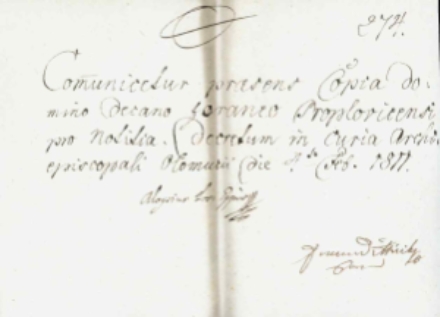 274.
Com̄unicetur præsens Copia Do-
mino Decano Foraneo
pro Notitia. Decretum in Curia Archi-
episcopali Olomucii die Feb. 1811.
Aloysius